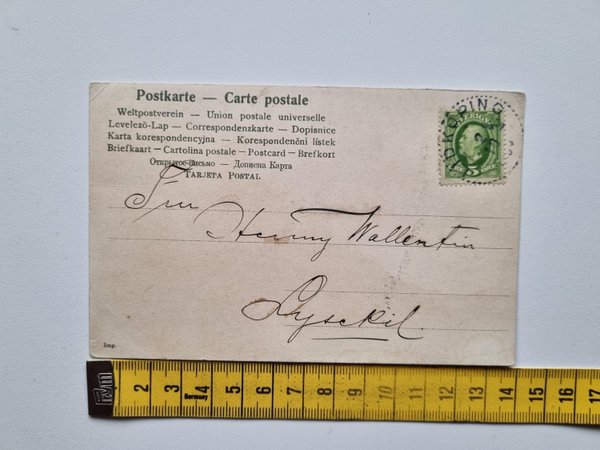 Postkarte — Carte postale
Weltpostverein — Union postale universelle
Levelező-Lap — Correspondenzkarte — Dopisnice
Karta korespondencyjna — Korespondenční lístek
Briefkaart — Cartolina postale — Postcard — Brefkort
Открытое письмо — Дописна Карта
TARJETA POSTAL
SVERIGE
5
Fru
Henny Wallentin
Lysekil
Imp.
2 3 4 5 6 7 8 9 10 11 12 13 14 15 16 17
Germany